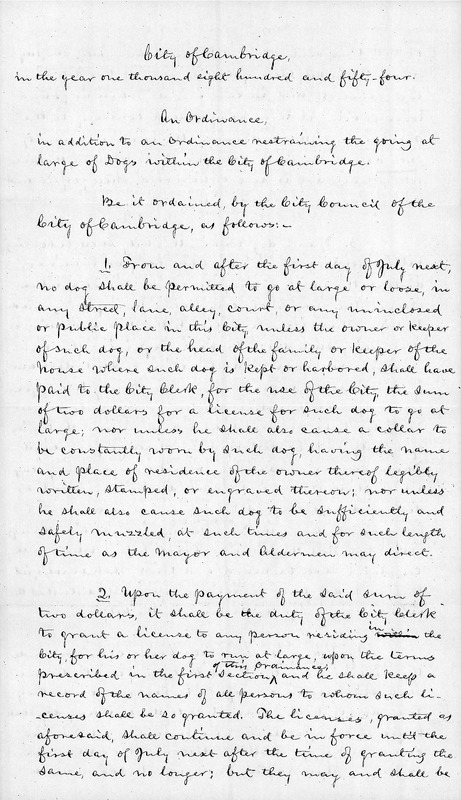 City of Cambridge,
in the year one thousand eight hundred and fifty-four.
An Ordinance,
in addition to an Ordinance restraining the going at
large of Dogs within the City of Cambridge.
Be it ordained, by the City Council of the
City of Cambridge, as follows:-
1. From and after the first day of July next,
no dog shall be permitted to go at large or loose, in
any street, lane, alley, court, or any uninclosed
or public place in this City, unless the owner or keeper
of such dog, or the head of the family or keeper of the
house where such dog is kept or harbored, shall have
paid to the City Clerk, for the use of the City, the sum
of two dollars for a license for such dog to go at
large; nor unless he shall also cause a collar to
be constantly worn by such dog, having the name
and place of residence of the owner thereof legibly
written, stamped, or engraved thereon; nor unless
he shall also cause such dog to be sufficiently and
safely muzzled, at such times and for such length
of time as the Mayor and Aldermen may direct.
2. Upon the payment of the said sum of
two dollars, it shall be the duty of the City Clerk
to grant a license to any person residing in within the
City, for his or her dog to run at large, upon the terms
prescribed in the first section of this Ordinance, and he shall keep a
record of the names of all persons to whom such li-
-censes shall be so granted. The licenses, granted as
aforesaid, shall continue and be in force until the
first day of July next after the time of granting the
same, and no longer; but they may and shall be